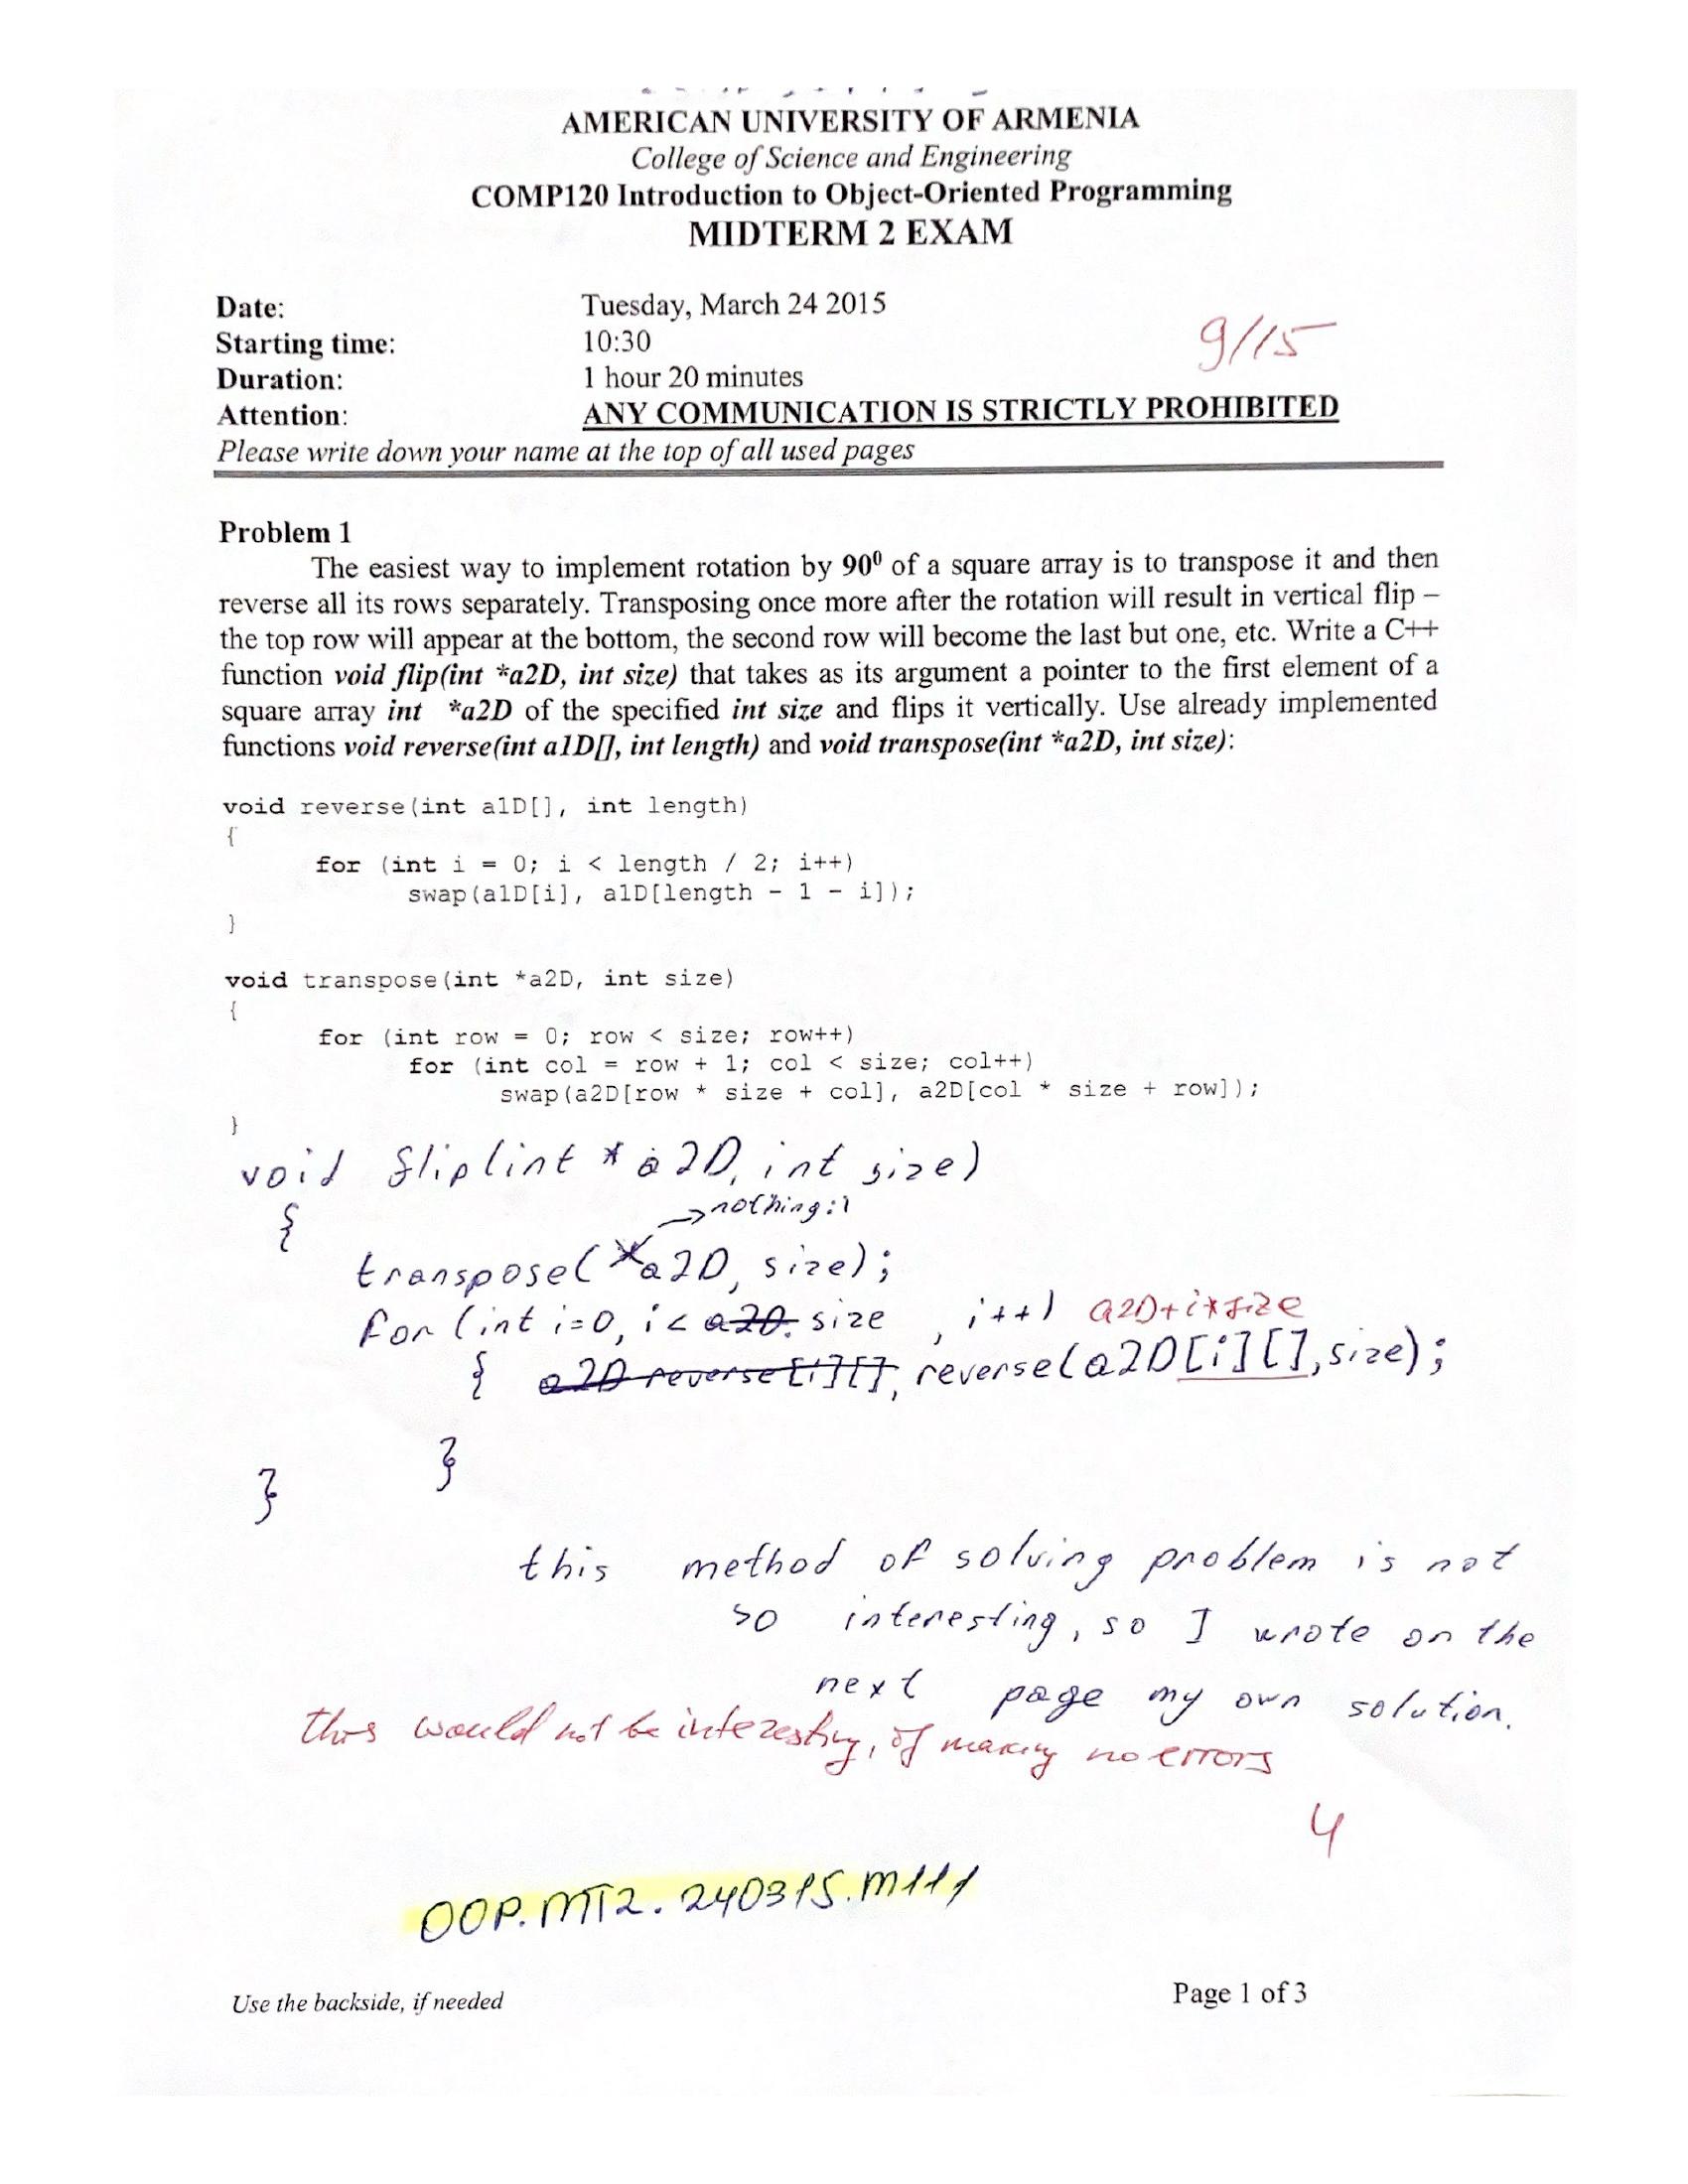 AMERICAN UNIVERSITY OF ARMENIA
College of Science and Engineering
COMP120 Introduction to Object-Oriented Programming
MIDTERM 2 EXAM
Date: Tuesday, March 24 2015
9/15
Starting time: 10:30
Duration: 1 hour 20 minutes
Attention: ANY COMMUNICATION IS STRICTLY PROHIBITED
Please write down your name at the top of all used pages
Problem 1
The easiest way to implement rotation by 90⁰ of a square array is to transpose it and then
reverse all its rows separately. Transposing once more after the rotation will result in vertical flip –
the top row will appear at the bottom, the second row will become the last but one, etc. Write a C++
function void flip(int *a2D, int size) that takes as its argument a pointer to the first element of a
square array int *a2D of the specified int size and flips it vertically. Use already implemented
functions void reverse(int a1D[], int length) and void transpose(int *a2D, int size):
void reverse(int a1D[], int length)
{
for (int i = 0; i < length / 2; i++)
swap(a1D[i], a1D[length - 1 - i]);
}
void transpose(int *a2D, int size)
{
for (int row = 0; row < size; row++)
for (int col = row + 1; col < size; col++)
swap(a2D[row * size + col], a2D[col * size + row]);
}
void flip(int * a2D, int size)
{
→ nothing :)
transpose(*a2D, size);
for (int i=0, i< a2D. size , i++) a2D+i*size
{ a2D reverse[i][], reverse(a2D[i][],size);
}
}
this method of solving problem is not
so interesting, so I wrote on the
next page my own solution.
this would not be interesting, if making no errors
4
OOP.MT2.240315.M111
Use the backside, if needed
Page 1 of 3